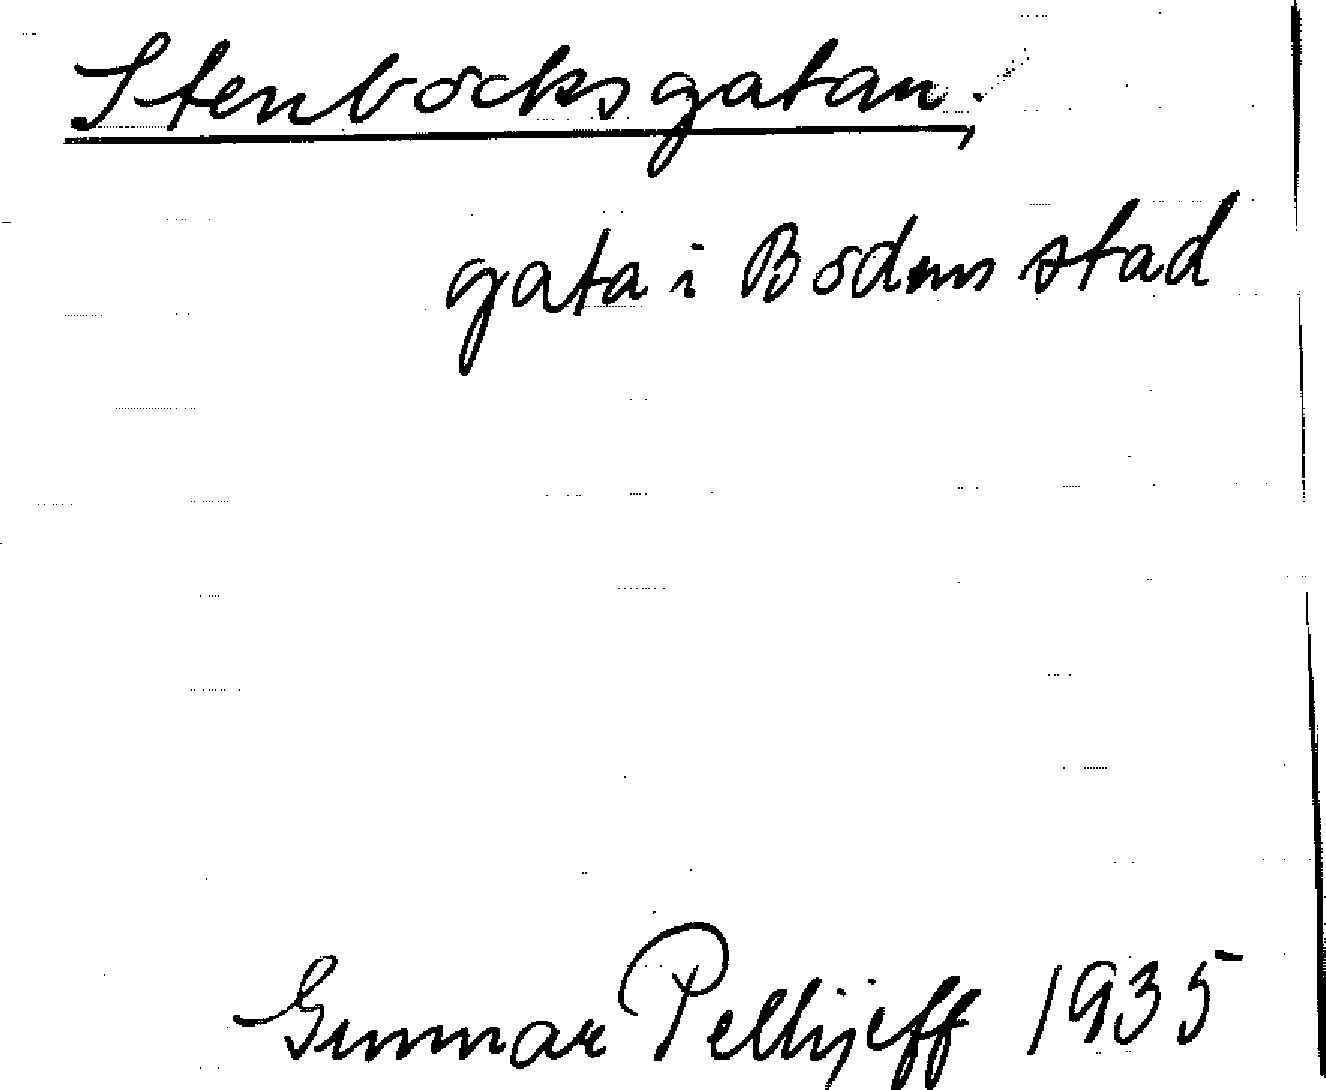 Stenbocksgatan.
gata i Bodens stad
Gunnar Pellijeff 1935